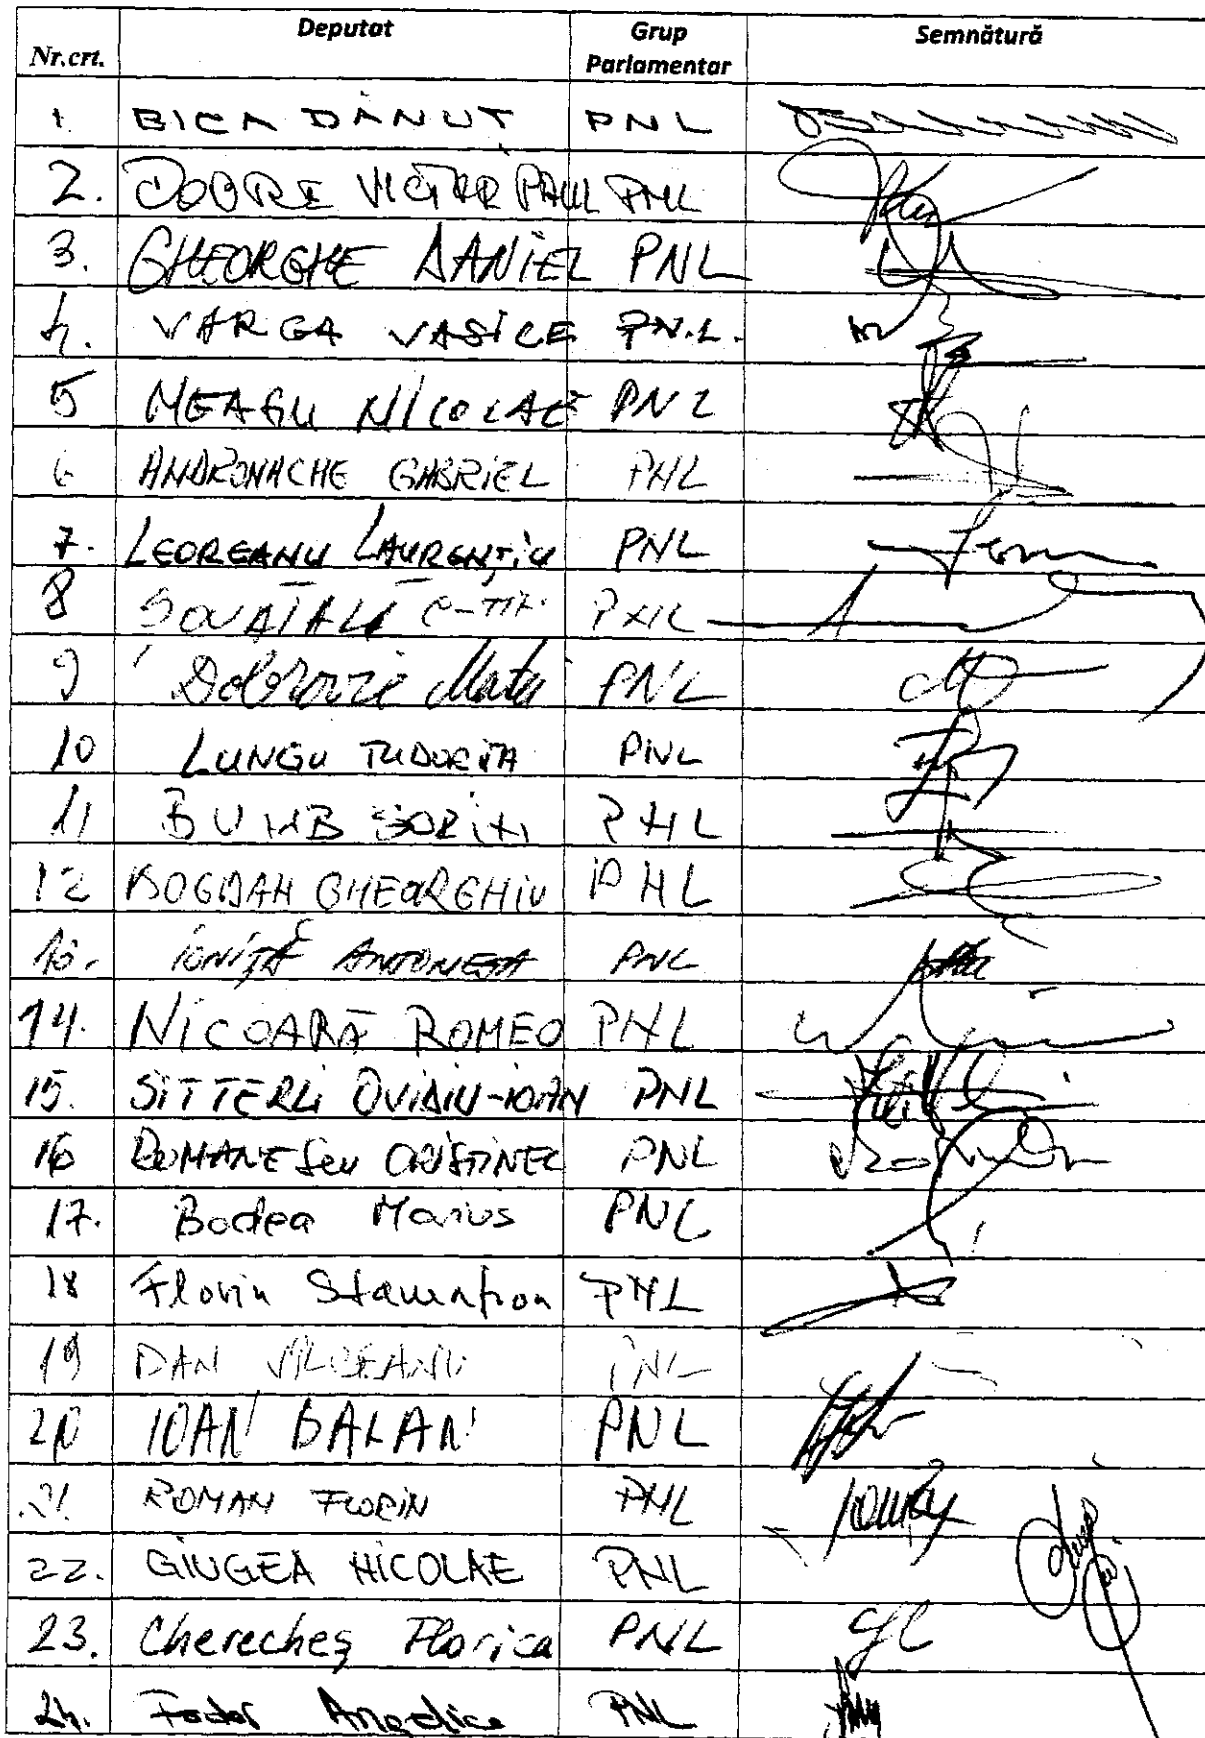 Nr.crt. Deputat Grup Parlamentar Semnătură
1. BICA DĂNUȚ PNL
2. DOBRE VICTOR PAUL PNL
3. GHEORGHE DANIEL PNL
4. VARGA VASILE P.N.L.
5 NEAGU NICOLAE PNL
6 ANDRONACHE GABRIEL PNL
7. LEOREANU LAURENȚIU PNL
8 ȘOVĂIALĂ C-TIN PNL
9 Dobrovie Matei PNL
10 LUNGU TUDORIȚA PNL
11 BUMB SORIN PNL
12 BOGDAN GHEORGHIU PNL
13. IONIȚĂ ANTONETA PNL
14. NICOARĂ ROMEO PNL
15. SITTERLI OVIDIU-IOAN PNL
16 ROMANESCU CRISTINEL PNL
17. Bodea Marius PNL
18 Florin Stamatian PNL
19 DAN VÎLCEANU PNL
20 IOAN BALAN PNL
21. ROMAN FLORIN PNL
22. GIUGEA NICOLAE PNL
23. Cherecheș Florica PNL
24. Fador Angelica PNL